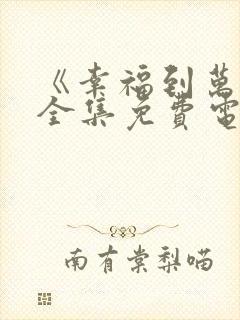 《幸福到萬
全集免費電
南有棠梨喵